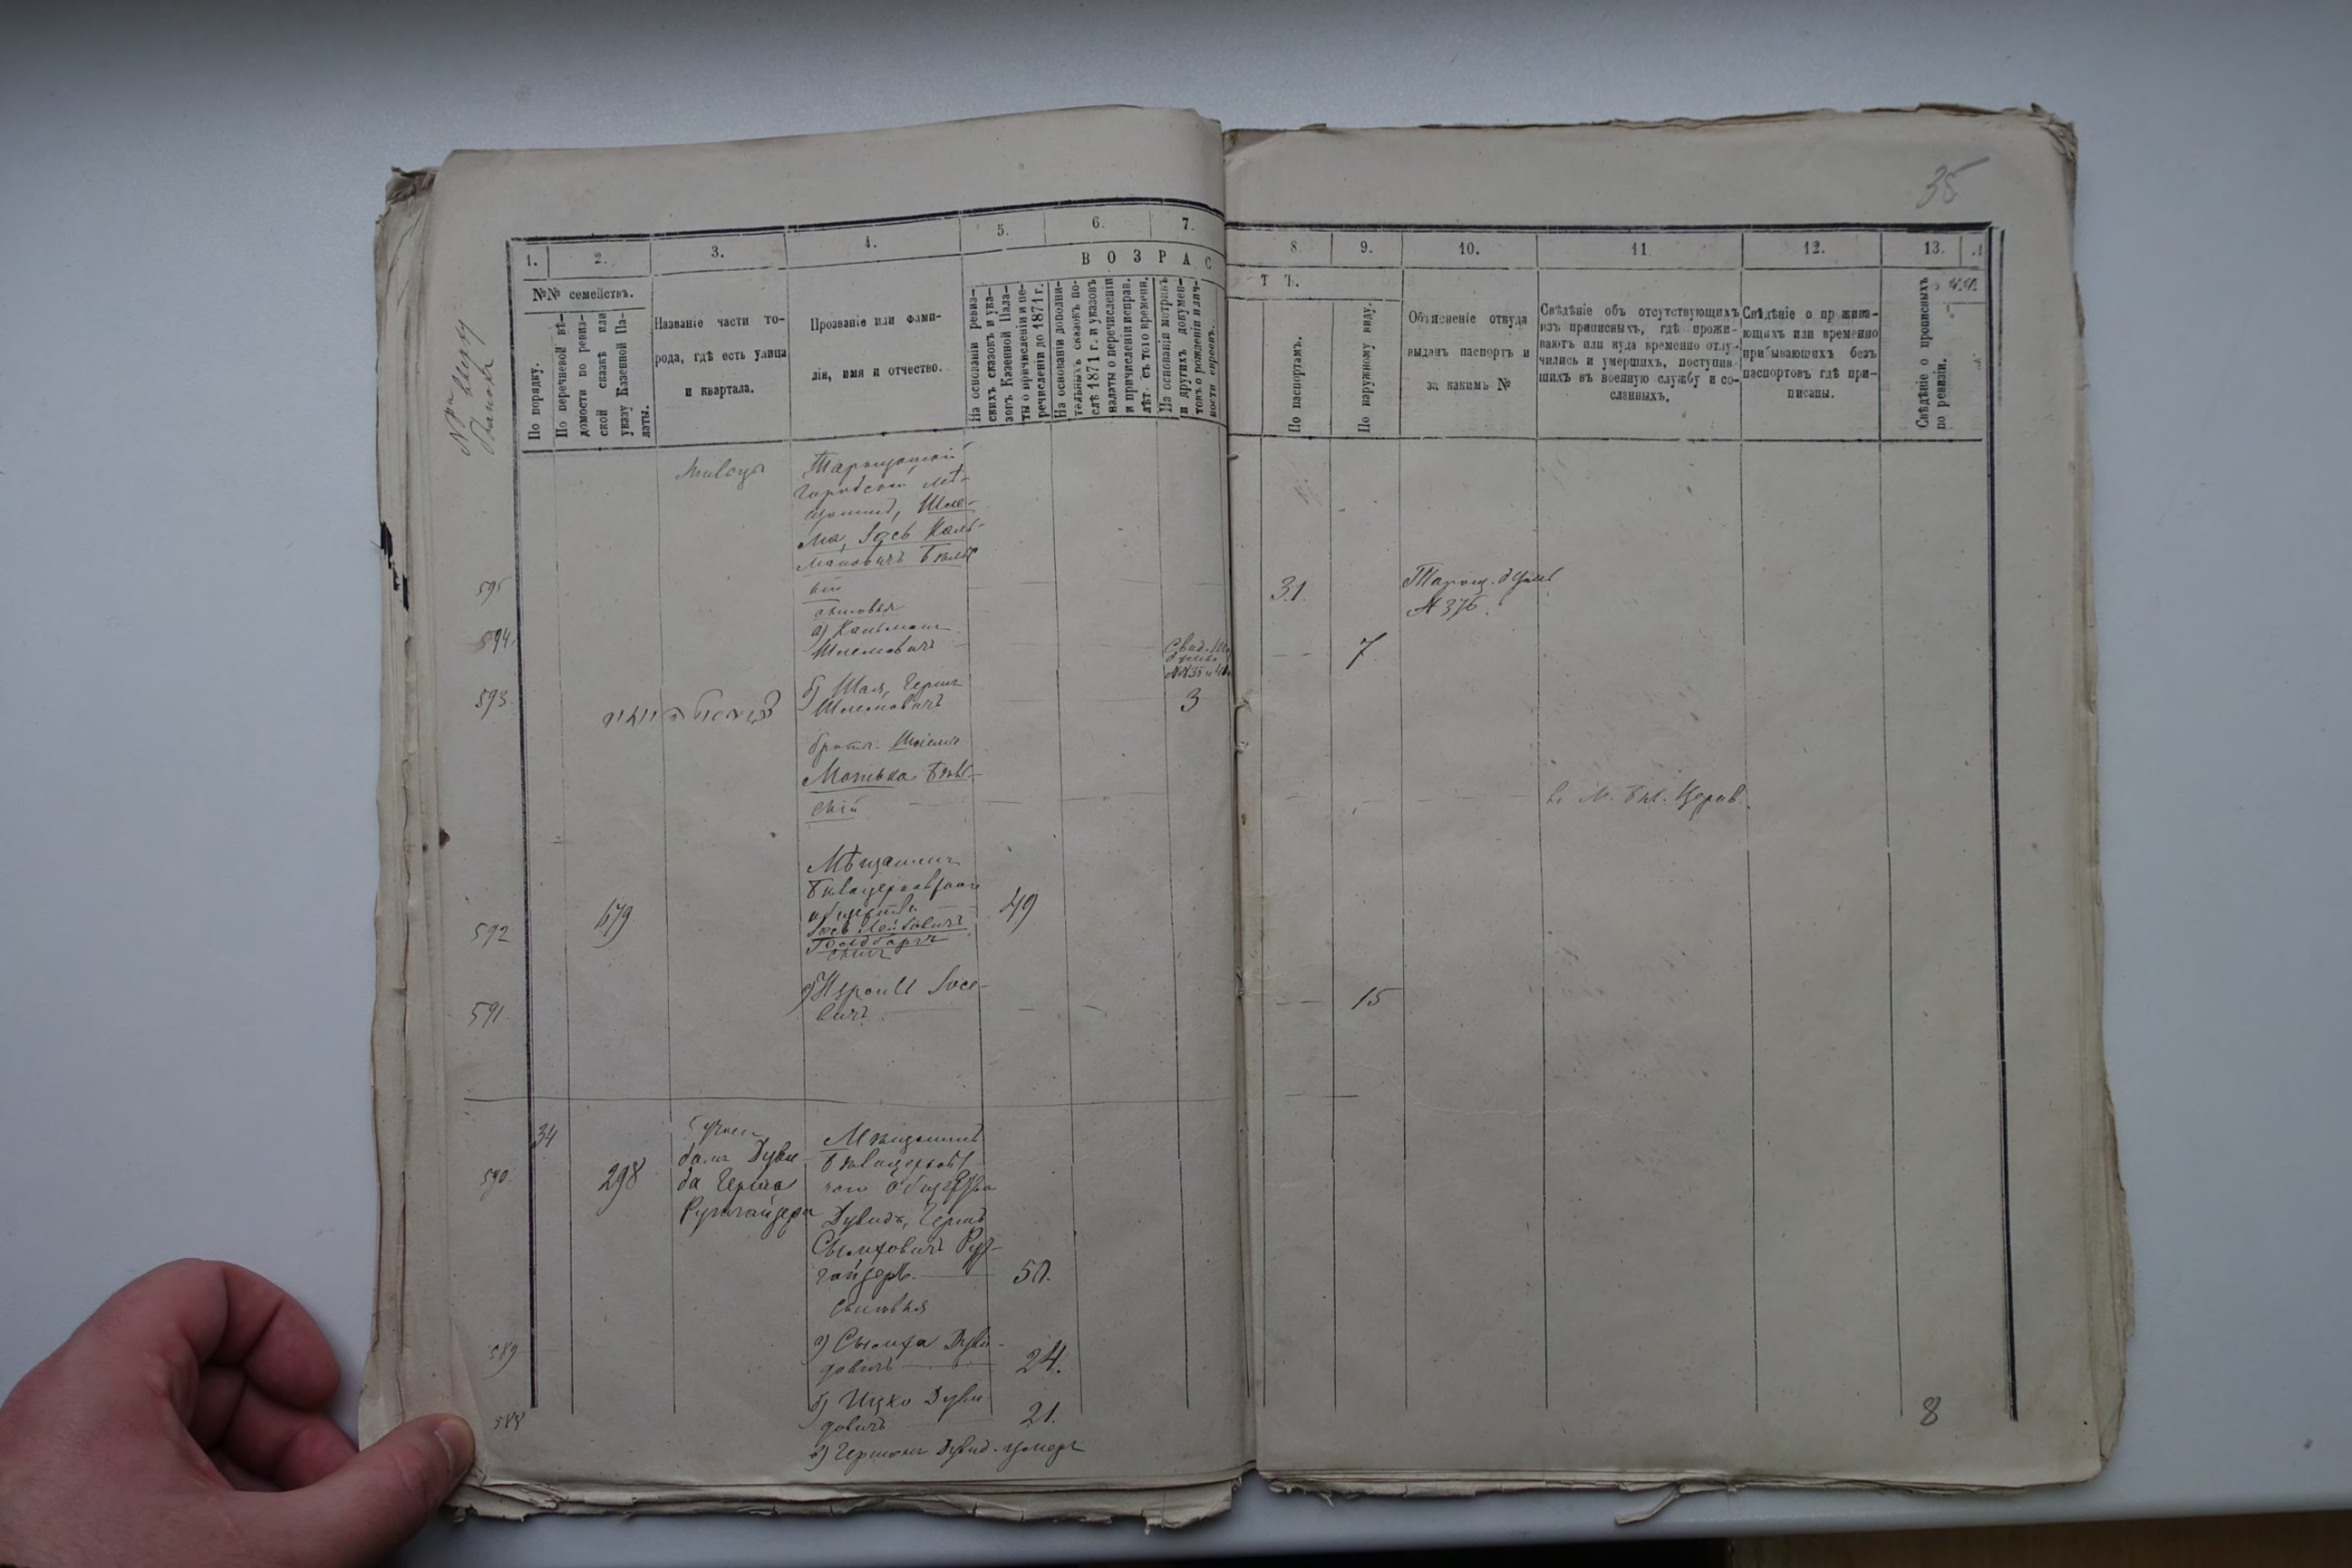 35
1. 2. 3. 4. 5. 6. 7. 8. 9. 10. 11. 12. 13.
В О З Р А С Т Ъ.
№№ семействъ.
По порядку.
По перечневой вѣ-
домости по ревиз-
ской сказкѣ или
указу Казенной Па-
латы.
Названіе части го-
рода, гдѣ есть улица
и квартала.
Прозваніе или фами-
лія, имя и отчество.
На основаніи ревиз-
скихъ сказокъ и ука-
зовъ Казенной Пала-
ты о причисленіи и пе-
речисленіи до 1871 г.
На основаніи дополни-
тельныхъ сказокъ по-
слѣ 1871 г. и указовъ
палаты о перечисленіи
и причисленіи исправ.
лѣт. съ того времени.
На основаніи метрикъ
и другихъ докумен-
товъ о рожденіи и лич-
ности евреевъ.
По паспортамъ.
По наружному виду.
Объясненіе откуда
выданъ паспортъ и
за какимъ №
Свѣдѣніе объ отсутствующихъ
изъ приписныхъ, гдѣ прожи-
ваютъ или куда временно отлу-
чились и умершихъ, поступив-
шихъ въ военную службу и со-
сланныхъ.
Свѣдѣніе о прожива-
ющихъ или временно
прибывающихъ безъ
паспортовъ гдѣ при-
писаны.
Свѣдѣніе о прописныхъ
по ревизіи.
Таращанскій
городской мѣ-
щанинъ, Шле-
ма, Іось Каль-
мановичъ Бѣльс
кій
595
31
№ 376.
сыновья
а) Кальманъ
594
Шлемовичъ
7
593
б) Шая, Гершъ
Шлемовичъ
3
братъ Шлемы
Мошка Бѣль-
скій
въ М. Бѣл. Церкв.
Мѣщанинъ
Бѣлацерковскаго
общества
592
679
Іось Лейбовичъ
49
б) Израиль Іосе-
591.
вичъ
15
34
590.
298
домъ Дуви-
да Герша
Рузгайзера
Мѣщанинъ
Бѣлацерковс
каго общества
Дувидъ, Гершъ
Сымховичъ Руз-
гайзеръ
50.
сыновья
589
а) Сымха Дуви-
довичъ
24.
588
б) Ицко Дуви-
довичъ
21.
в) Гершонъ Дувид. умеръ
8